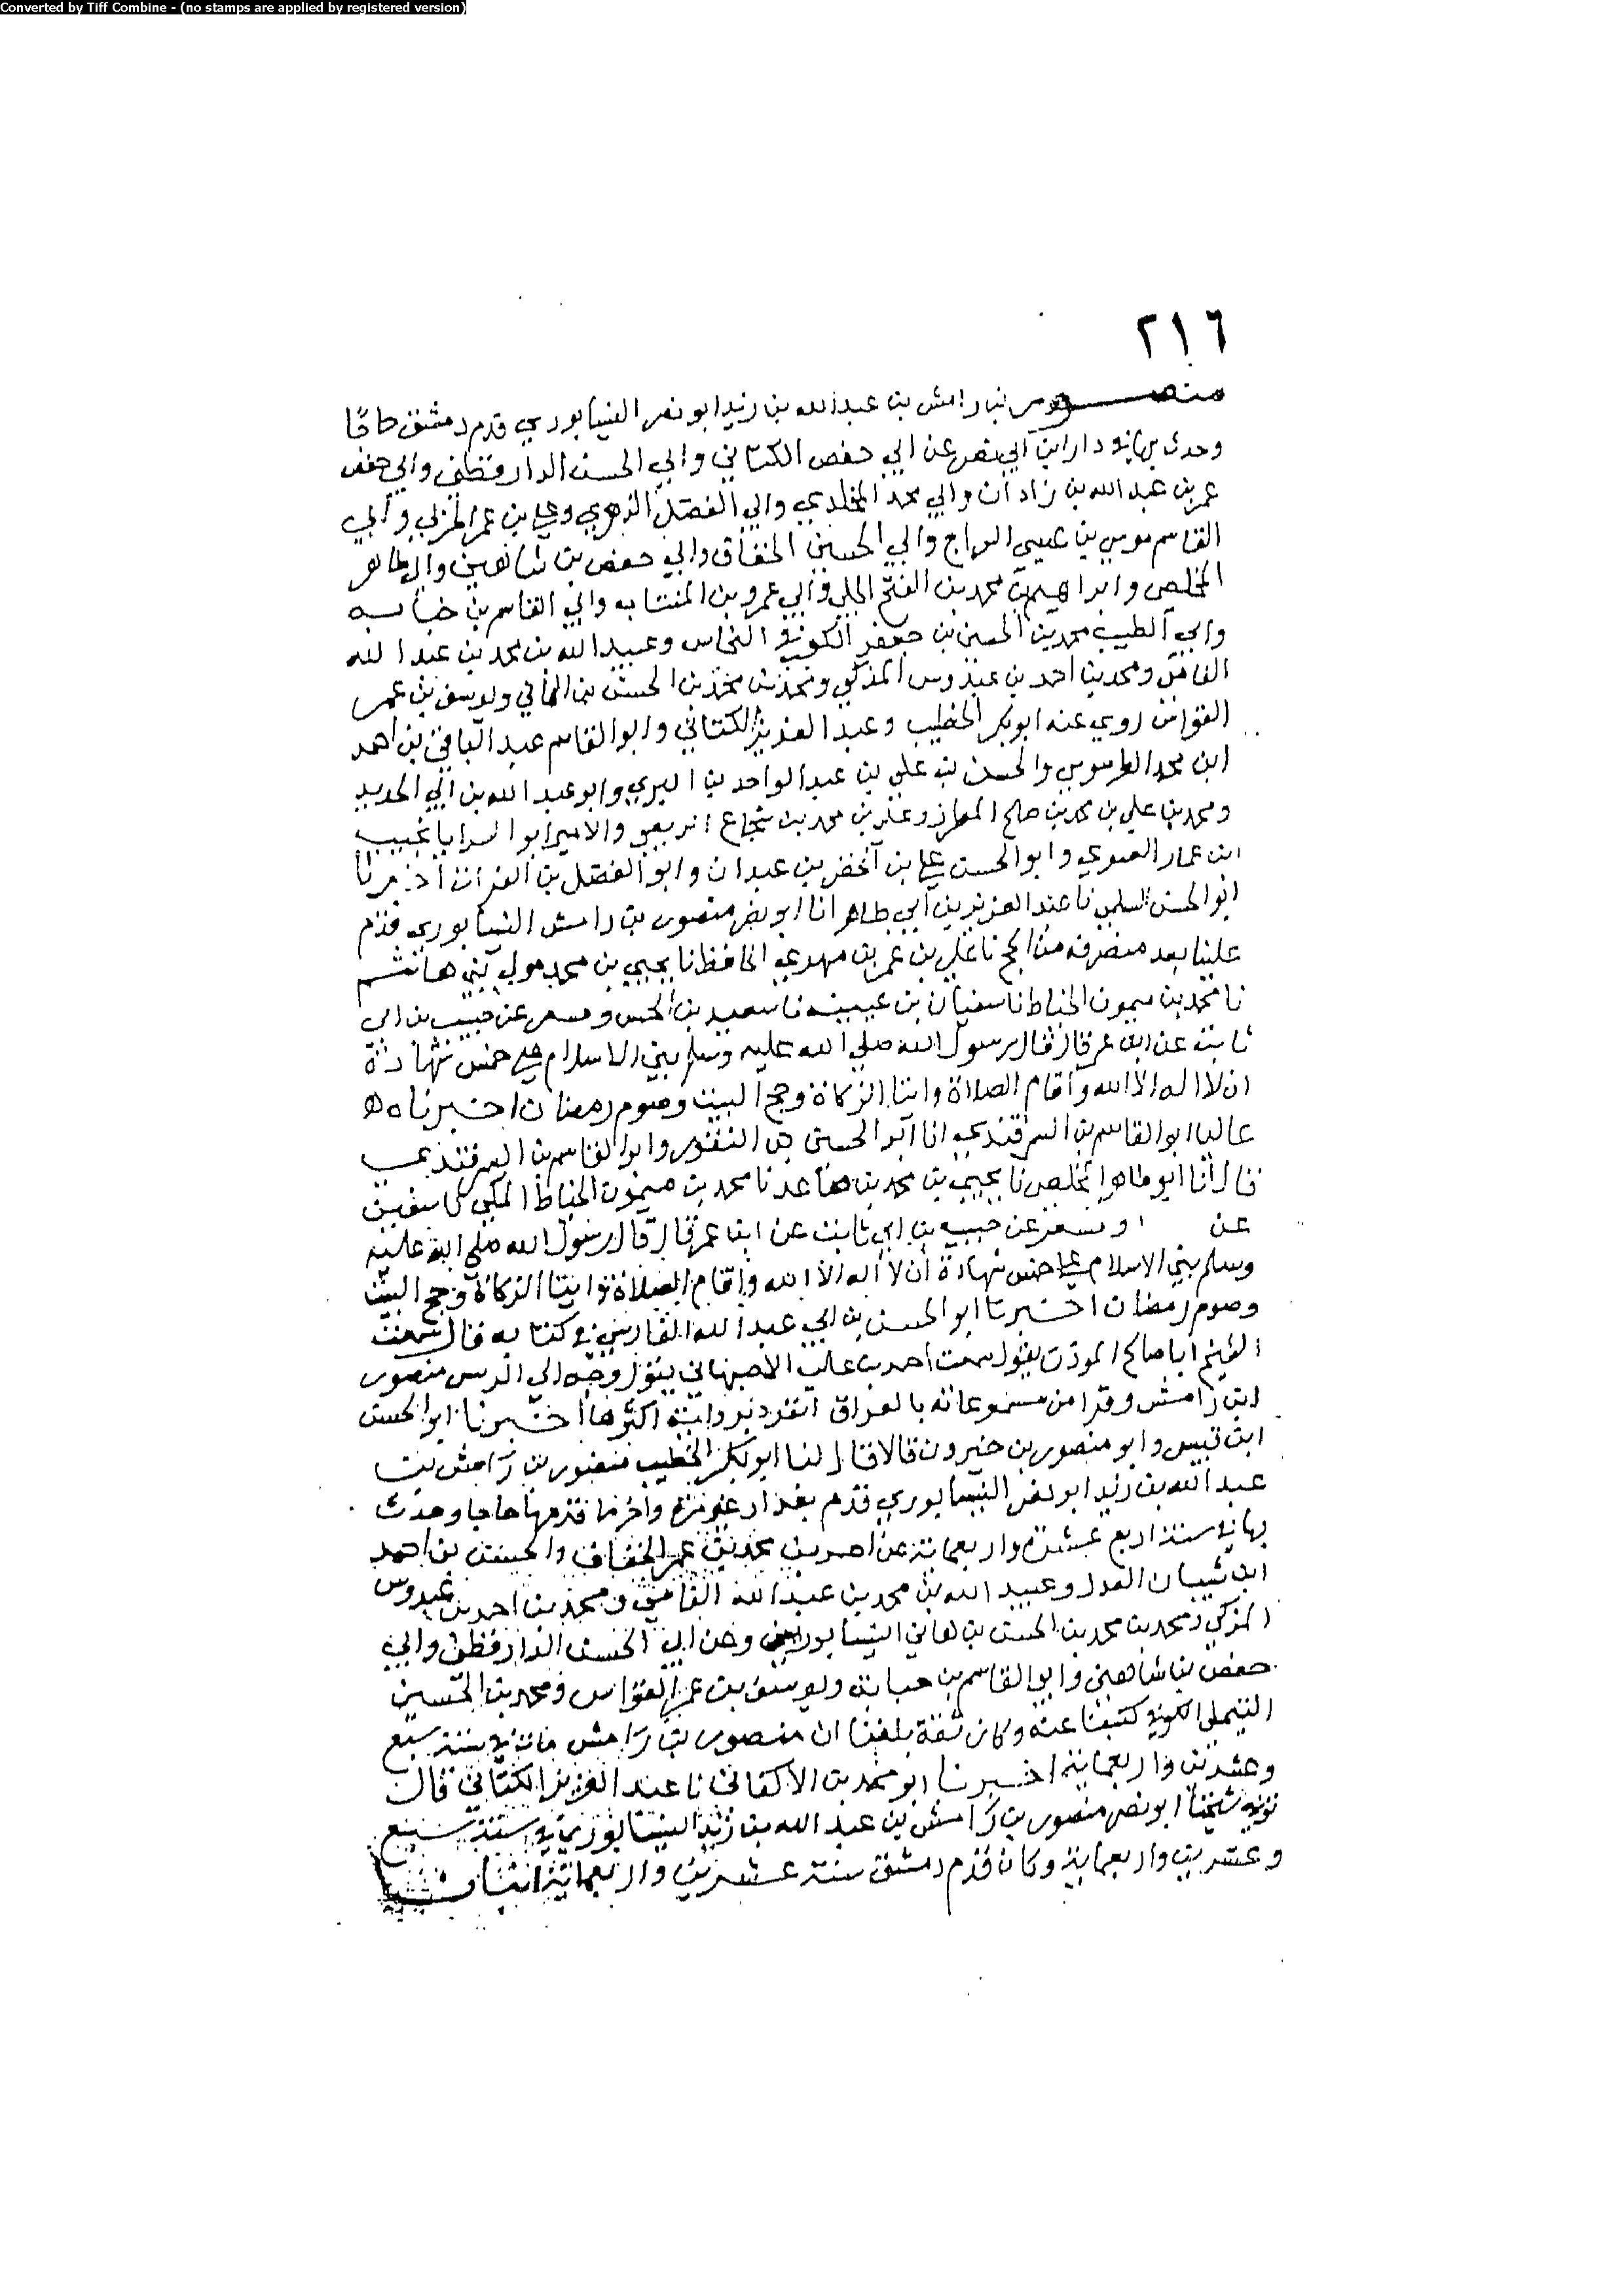 Converted by Tiff Combine - (no stamps are applied by registered version)
٢١٦
منصور بن رامش بن عبد الله بن زيد ابو نصر النيسابوري قدم دمشق حاجًا
وحدث بها في دار ابن ابي نصر عن ابي حفص الكتاني وابي الحسن الدارقطني وابي حفص
عمر بن عبد الله بن زاد ان وابي محمد المخلدي وابي الفضل الزهري وعلي بن عمر الحربي وابي
القاسم موسي بن عيسي السراج وابي الحسين الخفاف وابي حفص بن شاهين وابي طاهر
المخلص وابراهيم بن محمد بن الفتح الجلي وابي عمرو بن المنتاب وابي القاسم بن حبابه
وابي الطيب محمد بن الحسين بن جعفر الكوفي النخاس وعبيد الله بن محمد بن عبد الله
القامي ومحمد بن احمد بن عبدوس المزكي ومحمد بن محمد بن الحسن بن الهاني ويوسف بن عمر
القواس روي عنه ابو بكر الخطيب وعبد العزيز الكتاني وابو القاسم عبد الباقي بن احمد
ابن محمد الطرسوسي والحسن بن علي بن عبد الواحد بن البري وابو عبد الله بن ابي الحديد
ومحمد بن علي بن محمد بن صالح المطرز وعلي بن محمد بن شجاع الربعي والامير ابو السرايا نجيب
ابن عمار الغنوي وابو الحسن علي بن الخضر بن عبدان وابو الفضل بن الفرات اخبرنا
ابو الحسن السلمي نا عبد العزيز بن ابي طاهر انا ابو نصر منصور بن رامش النيسابوري قدم
علينا بعد منصرفه من الحج نا علي بن عمر بن مهدي الحافظ نا يحيي بن محمد مولي بني هاشم
نا محمد بن ميمون الخياط نا سفيان بن عيينه نا سعير بن الخمس ومسعر عن حبيب بن ابي
ثابت عن ابن عمر قال قال رسول الله صلي الله عليه وسلم بني الاسلام علي خمس شهادة
ان لا اله الا الله واقام الصلاة وايتا الزكاة وحج البيت وصوم رمضان اخبرناه
عاليا ابو القاسم بن السمرقندي انا ابو الحسين بن النقور وابو القاسم بن البسري
قالا انا ابو طاهر المخلص نا يحيي بن محمد بن صاعد نا محمد بن ميمون الخياط المكي نا سفين
عن ومسعر عن حبيب بن ابي ثابت عن ابن عمر قال قال رسول الله صلي الله عليه
وسلم بني الاسلام علي خمس شهادة ان لا اله الا الله واقام الصلاة وايتا الزكاة وحج البيت
وصوم رمضان اخبرنا ابو الحسن بن ابي عبد الله الفارسي في كتابه قال سمعت
الشيخ ابا صالح الموذن يقول سمعت احمد بن علي الاصبهاني يقول وجه الي الرييس منصور
ابن رامش وقرا من مسموعاته بالعراق انفرد برواية اكثرها اخبرنا ابو الحسن
ابن قبيس وابو منصور بن خيرون قالا قال لنا ابو بكر الخطيب منصور بن رامش بن
عبد الله بن زيد ابو نصر النيسابوري قدم بغداد غير مرة واخر ما قدمها حاجا وحدث
بها في سنة اربع عشرة واربعماية عن احمد بن محمد بن عمر الخفاف والحسن بن احمد
ابن شيبان العدل وعبيد الله بن محمد بن عبد الله القامي ومحمد بن احمد بن عبدوس
المزكي ومحمد بن محمد بن الحسن بن هاني النيسابوريين وعن ابي الحسن الدارقطني وابي
حفص بن شاهين وابو القاسم بن حبابة ويوسف بن عمر القواس ومحمد بن الحسين
التيملي الكوفي كتبنا عنه وكان ثقة بلغنا ان منصور بن رامش مات في سنة سبع
وعشرين واربعماية اخبرنا ابو محمد بن الاكفاني نا عبد العزيز الكتاني قال
توفي شيخنا ابو نصر منصور بن رامش بن عبد الله بن زيد النيسابوري في سنة سبع
وعشرين واربعماية وكان قدم دمشق سنة عشرين واربعماية